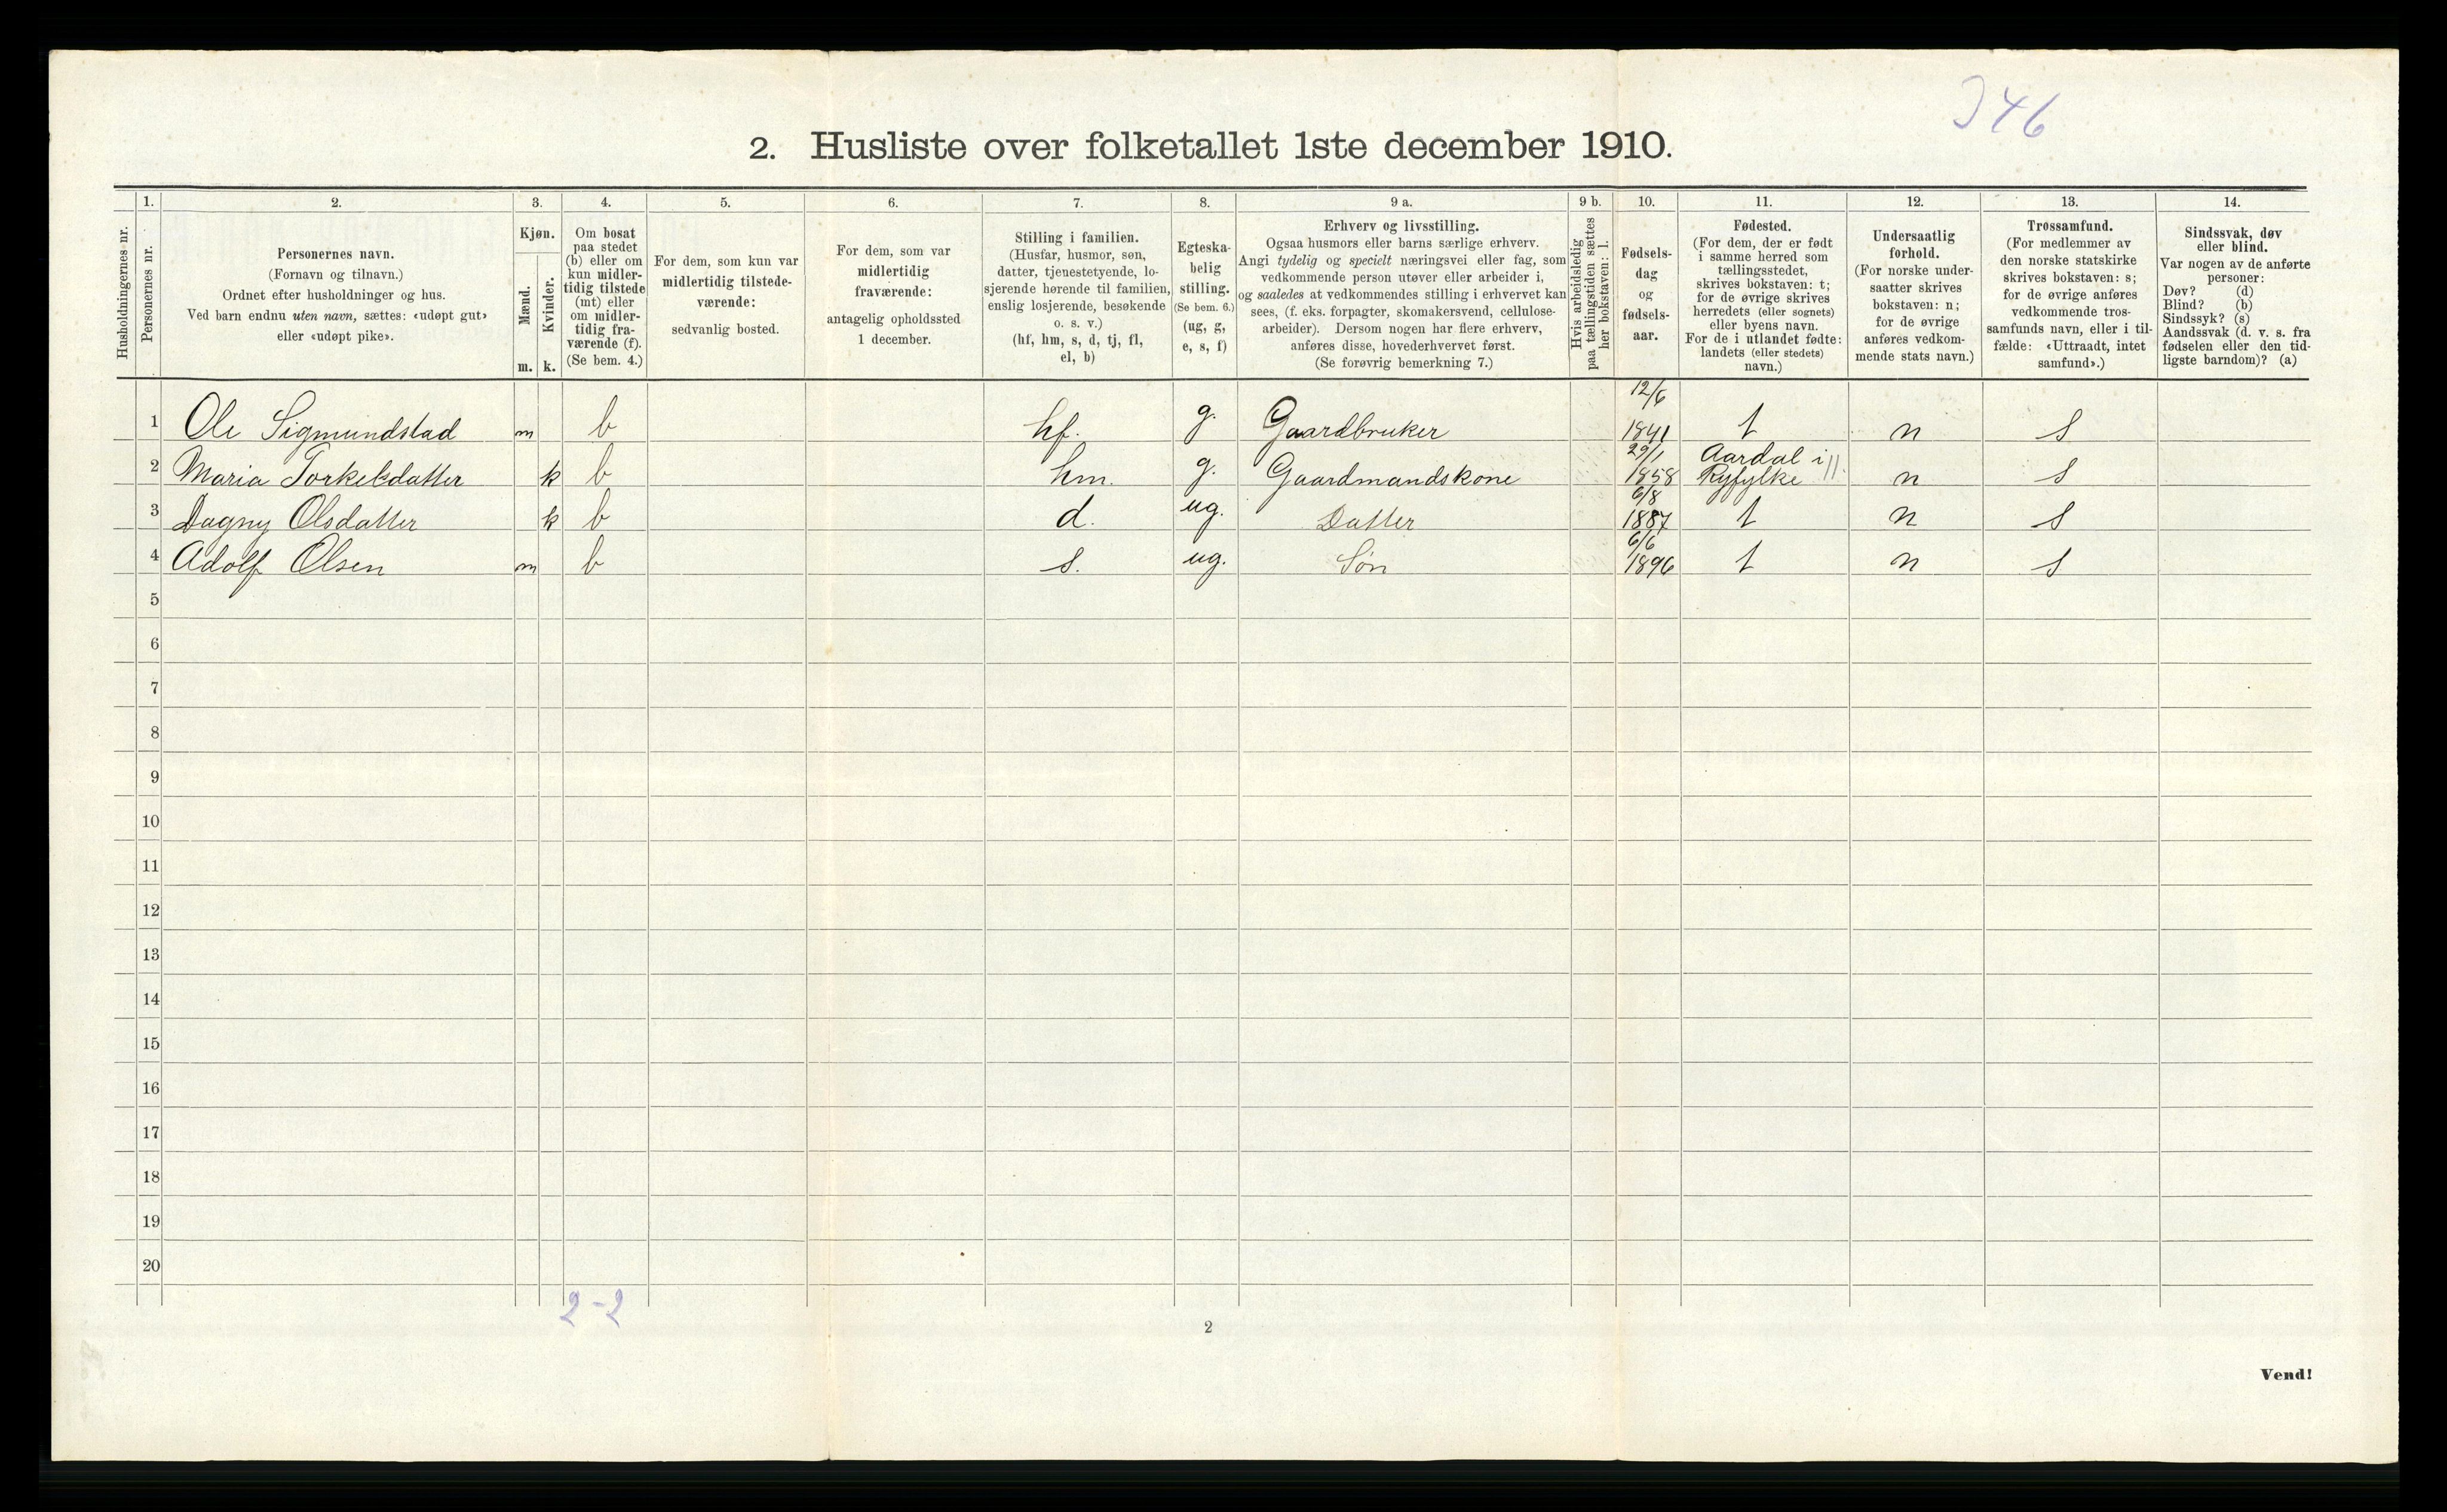 346
2. Husliste over folketallet 1ste december 1910.
Husholdningernes nr.
1.
Personernes nr.
2.
Personernes navn.
(Fornavn og tilnavn.)
Ordnet efter husholdninger og hus.
Ved barn endnu uten navn, sættes: «udøpt gut»
eller «udøpt pike».
3.
Kjøn.
Mænd.
Kvinder.
m. k.
4.
Om bosat
paa stedet
(b) eller om
kun midler-
tidig tilstede
(mt) eller
om midler-
tidig fra-
værende (f).
(Se bem. 4.)
5.
For dem, som kun var
midlertidig tilstede-
værende:
sedvanlig bosted.
6.
For dem, som var
midlertidig
fraværende:
antagelig opholdssted
1 december.
7.
Stilling i familien.
(Husfar, husmor, søn,
datter, tjenestetyende, lo-
sjerende hørende til familien,
enslig losjerende, besøkende
o. s. v.)
(hf, hm, s, d, tj, fl,
el, b)
8.
Egteska-
belig
stilling.
(Se bem. 6.)
(ug, g,
e, s, f)
9 a.
Erhverv og livsstilling.
Ogsaa husmors eller barns særlige erhverv.
Angi tydelig og specielt næringsvei eller fag, som
vedkommende person utøver eller arbeider i,
og saaledes at vedkommendes stilling i erhvervet kan
sees, (f. eks. forpagter, skomakersvend, cellulose-
arbeider). Dersom nogen har flere erhverv,
anføres disse, hovederhvervet først.
(Se forøvrig bemerkning 7.)
9 b.
Hvis arbeidsledig
paa tællingstiden sættes
her bokstaven: l.
10.
Fødsels-
dag
og
fødsels-
aar.
11.
Fødested.
(For dem, der er født
i samme herred som
tællingsstedet,
skrives bokstaven: t;
for de øvrige skrives
herredets (eller sognets)
eller byens navn.
For de i utlandet fødte:
landets (eller stedets)
navn.)
12.
Undersaatlig
forhold.
(For norske under-
saatter skrives
bokstaven: n;
for de øvrige
anføres vedkom-
mende stats navn.)
13.
Trossamfund.
(For medlemmer av
den norske statskirke
skrives bokstaven: s;
for de øvrige anføres
vedkommende tros-
samfunds navn, eller i til-
fælde: «Uttraadt, intet
samfund».)
14.
Sindssvak, døv
eller blind.
Var nogen av de anførte
personer:
Døv? (d)
Blind? (b)
Sindssyk? (s)
Aandssvak (d. v. s. fra
fødselen eller den tid-
ligste barndom)? (a)
1 Ole Sigmundstad m b hf. g. Gaardbruker 12/6 1841 t n s
2 Maria Torkelsdatter k b hm. g. Gaardmandskone 29/1 1858 Aardal i Ryfylke 11. n s
3 Dagny Olsdatter k b d. ug. Datter 6/8 1887 t n s
4 Adolf Olsen m b s. ug. Søn 6/6 1896 t n s
5
6
7
8
9
10
11
12
13
14
15
16
17
18
19
20
2-2
2
Vend!